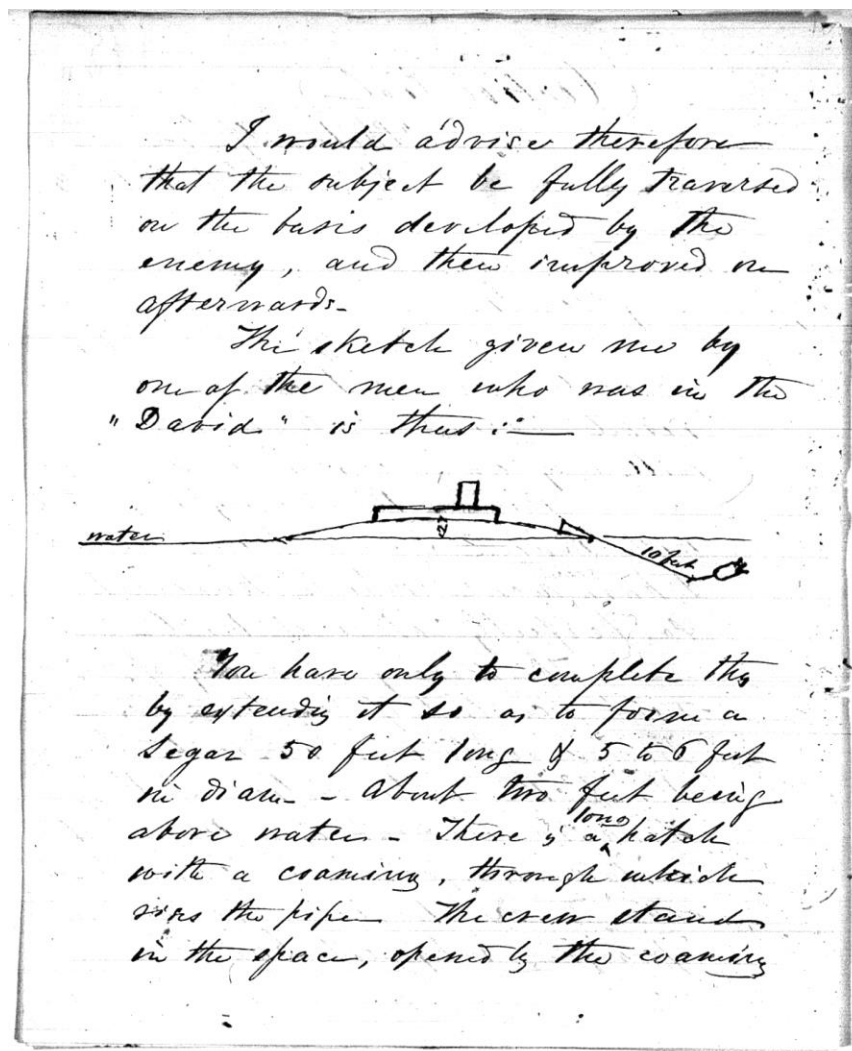 I would advise therefore
that the subject be fully traversed
on the basis developed by the
enemy, and then improved on
afterwards-
The sketch given me by
one of the men who was in the
"David" is thus:—
water
10 feet
You have only to complete this
by extending it so as to form a
Segar 50 feet long & 5 to 6 feet
in diam - About two feet being
above water - There is a long hatch
with a coaming, through which
rises the pipe The crew stand
in the space, opened by the coaming